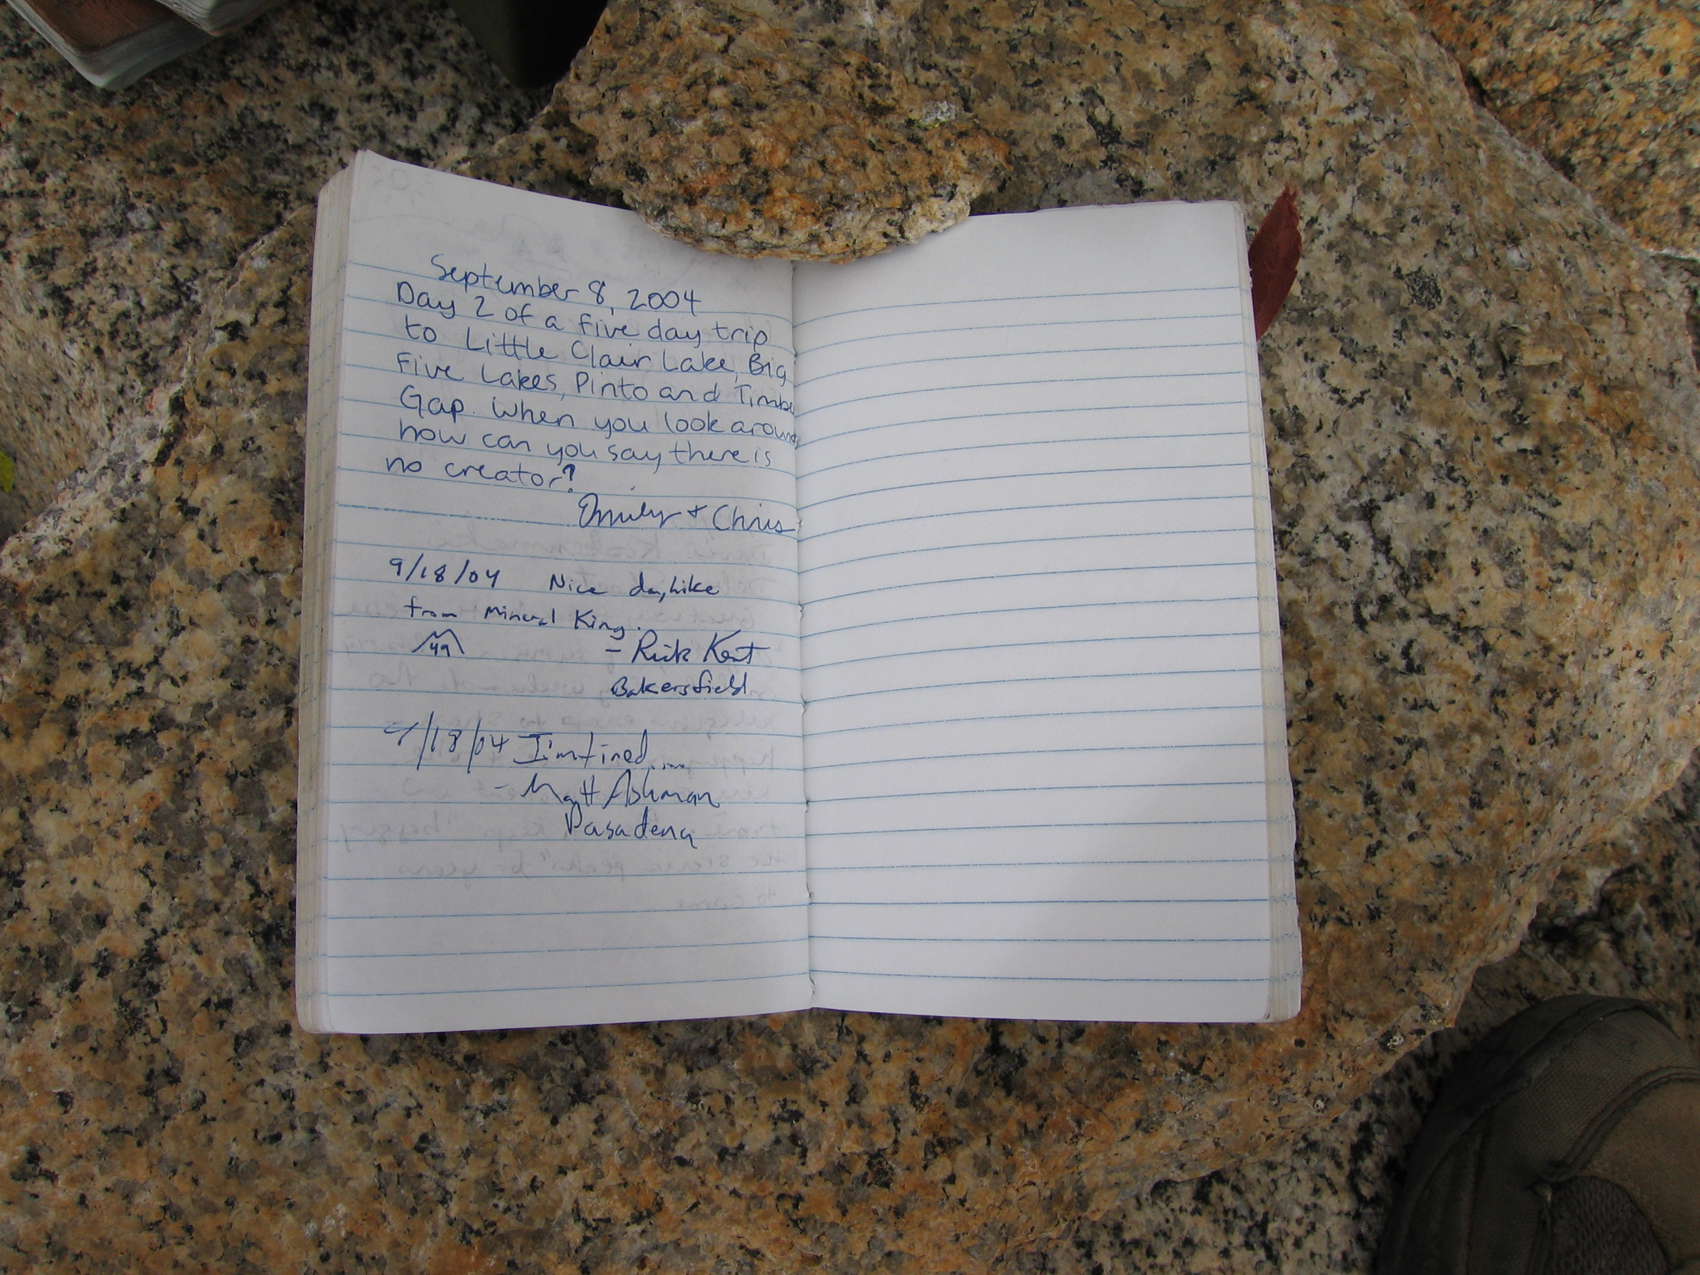 September 8, 2004
Day 2 of a five day trip
to Little Clair Lake, Big
Five Lakes, Pinto and Timbe
Gap. When you look around
how can you say there is
no creator?
Emily + Chris
9/18/04 Nice dayhike
from Mineral King.
- Rick Kent
Bakersfield
9/18/04 I'm tired....
- Matt Ashman
Pasadena